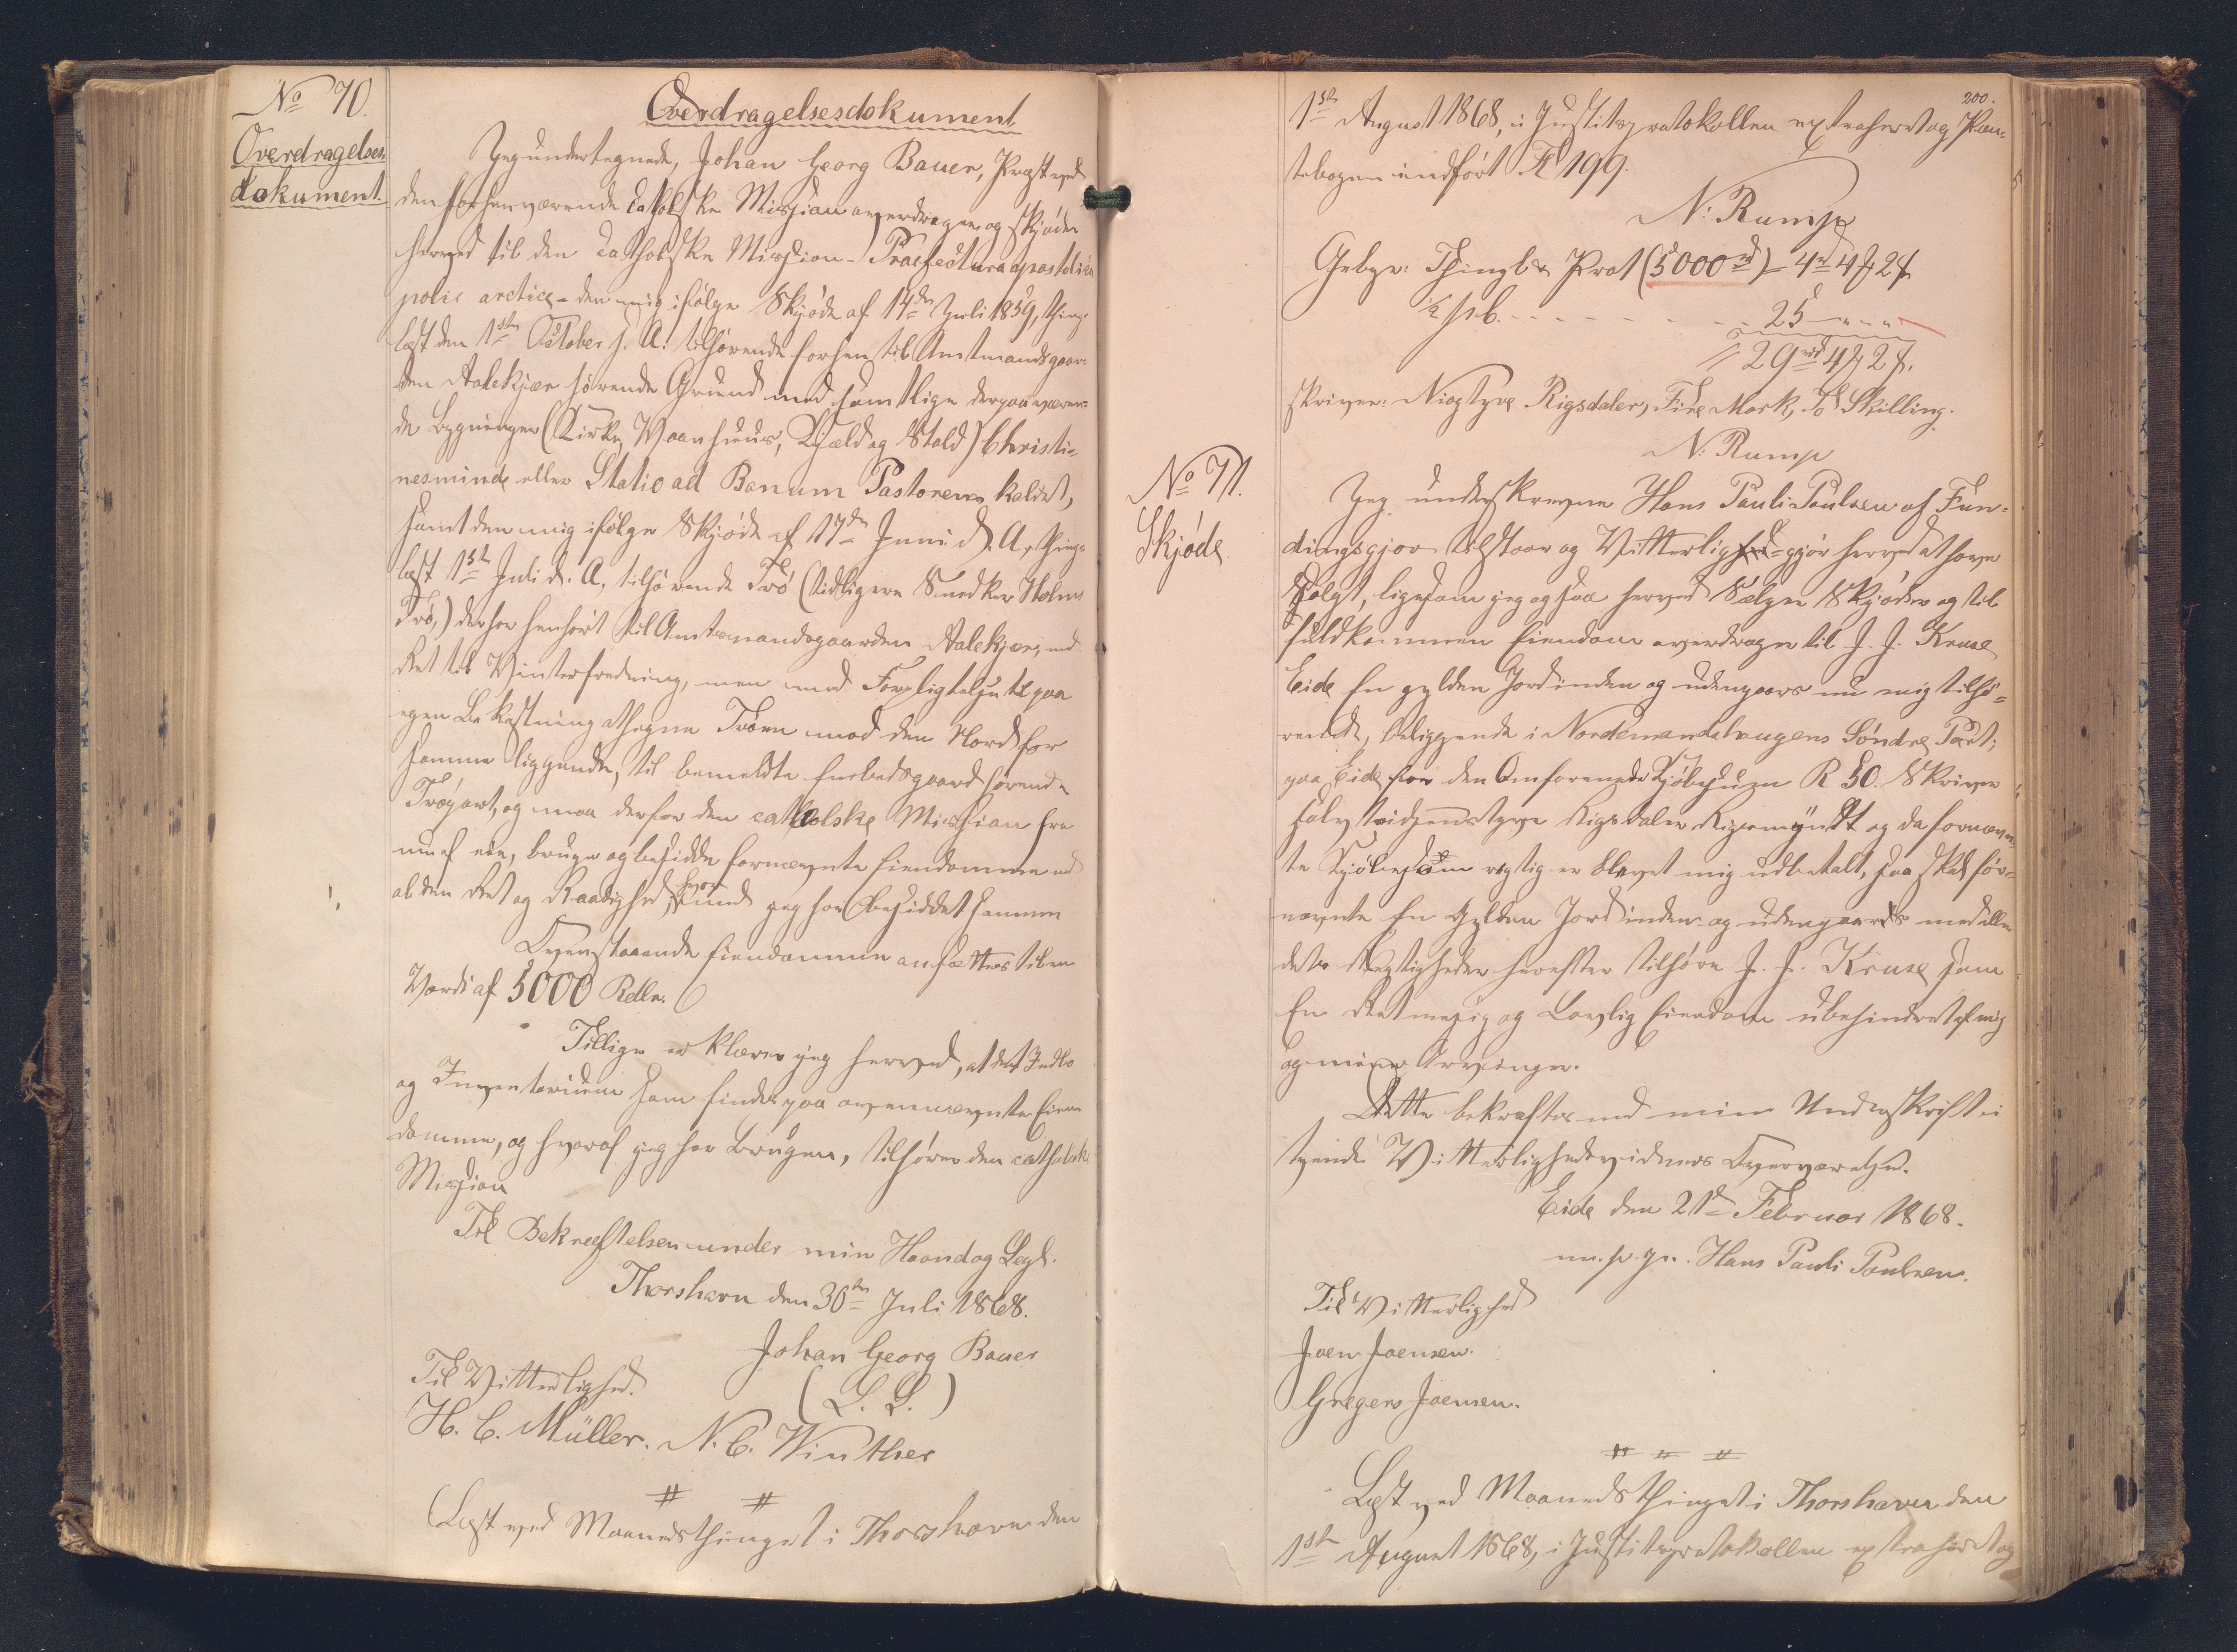 No 70.
Overdragelses-
dokument.
Overdragelsesdokument
Jeg undertegnede, Johan Georg Bauer, Præst ved
den forhenværende catholske Mission overdrager og skjøder
herved til den catholske Mission - Praefectura apostolica
poli arctici - den mig ifølge Skjøde af 14de Juli 1859, thing-
læst den 1ste October s. A. tilhørende forhen til Amtmandsgaar-
den Aalekjær hørende Grund med samtlige derpaa væren-
de Bygninger (Kirke, Vaanhuus, Kjæld og Stald) Christi-
nesminde eller Statio ad Bonum Pastorem kaldet,
samt den mig ifølge Skjøde af 17de Juni d. A., thing-
læst 1ste Juli d. A., tilhørende Trø (tidligere Snedker Holms
Trø,) der har henhørt til Amtmandsgaarden Aalekjær, med
Ret til Vinterfredning, men med Forpligtelse til paa
egen Bekostning at hegne Trøen mod den Nord for
samme liggende, til bemeldte Embedsgaard hørende
Trøpart, og maa derfor den catholske Mission fra
nu af eie, bruge og besidde fornævnte Eiendomme med
al den Ret og Raadighed, hvormed jeg har besiddet samme
Ovenstaaende Eiendomme ansættes til en
Værdi af 5000 Rdlr.
Tillige erklærer jeg herved, at det Indbo
og Inventarium som findes paa ovennævnte Eien-
domme, og hvoraf jeg har Brugen, tilhører den catholske
Mission
Til Bekræftelse under min Haand og Segl.
Thorshavn den 30te Juli 1868.
Johan Georg Bauer
(L. S.)
Til Vitterlighed.
H. C. Müller. N. C. Winther
Læst ved Maanedsthinget i Thorshavn den
200.
1ste August 1868, i Justitsprotokollen extraheret og Pan-
tebogen indført Fol 199.
N: Rump
Gebyr: Thingl & Prot (5000 rd) - 4 rd 4 ₰ 2 s.
½ pCt. - - - - - - 25 " "
29 rd 4 ₰ 2 s.
skriver: Niogtyve Rigsdaler, Fire Mark, To Skilling.
N: Rump
No 71.
Skjøde.
Jeg underskrevne Hans Pauli Poulsen af Fun-
dingsgjov tilstaar og Vitterlig-gjør herved at have
Solgt, ligesom jeg ogsaa herved Sælger Skjøder og til
fuldkommen Eiendom overdrager til J. J. Kruse
Eide En gylden Jord inden og udengaars nu mig tilhø-
rende, beliggende i Nordemandshaugens Søndre Part,
paa Eide for den Omforenede Kjøbesum R 50. Skriver
halvtredsenstyve Rigsdaler Rigsmyndt og da fornævn-
te Kjøbesum rigtig er blevet mig udbetalt, saa skal for-
nævnte En Gylden Jord inden og udengaards med alle
dets Rettigheder herefter tilhøre J. J. Kruse som
En Retmæsig og Lovlig Eiendom ubehindret af mig
og mine Arvinger.
Dette bekræftes med min Underskrift i
tvende Vitterlighedsvidners Overværelse.
Eide den 21de Februar 1868.
m. p. p. Hans Pauli Poulsen.
Til Vitterlighed
Joen Joensen.
Gregers Joensen.
Læst ved Maanedsthinget i Thorshavn den
1ste August 1868, i Justitsprotokollen extraheret og